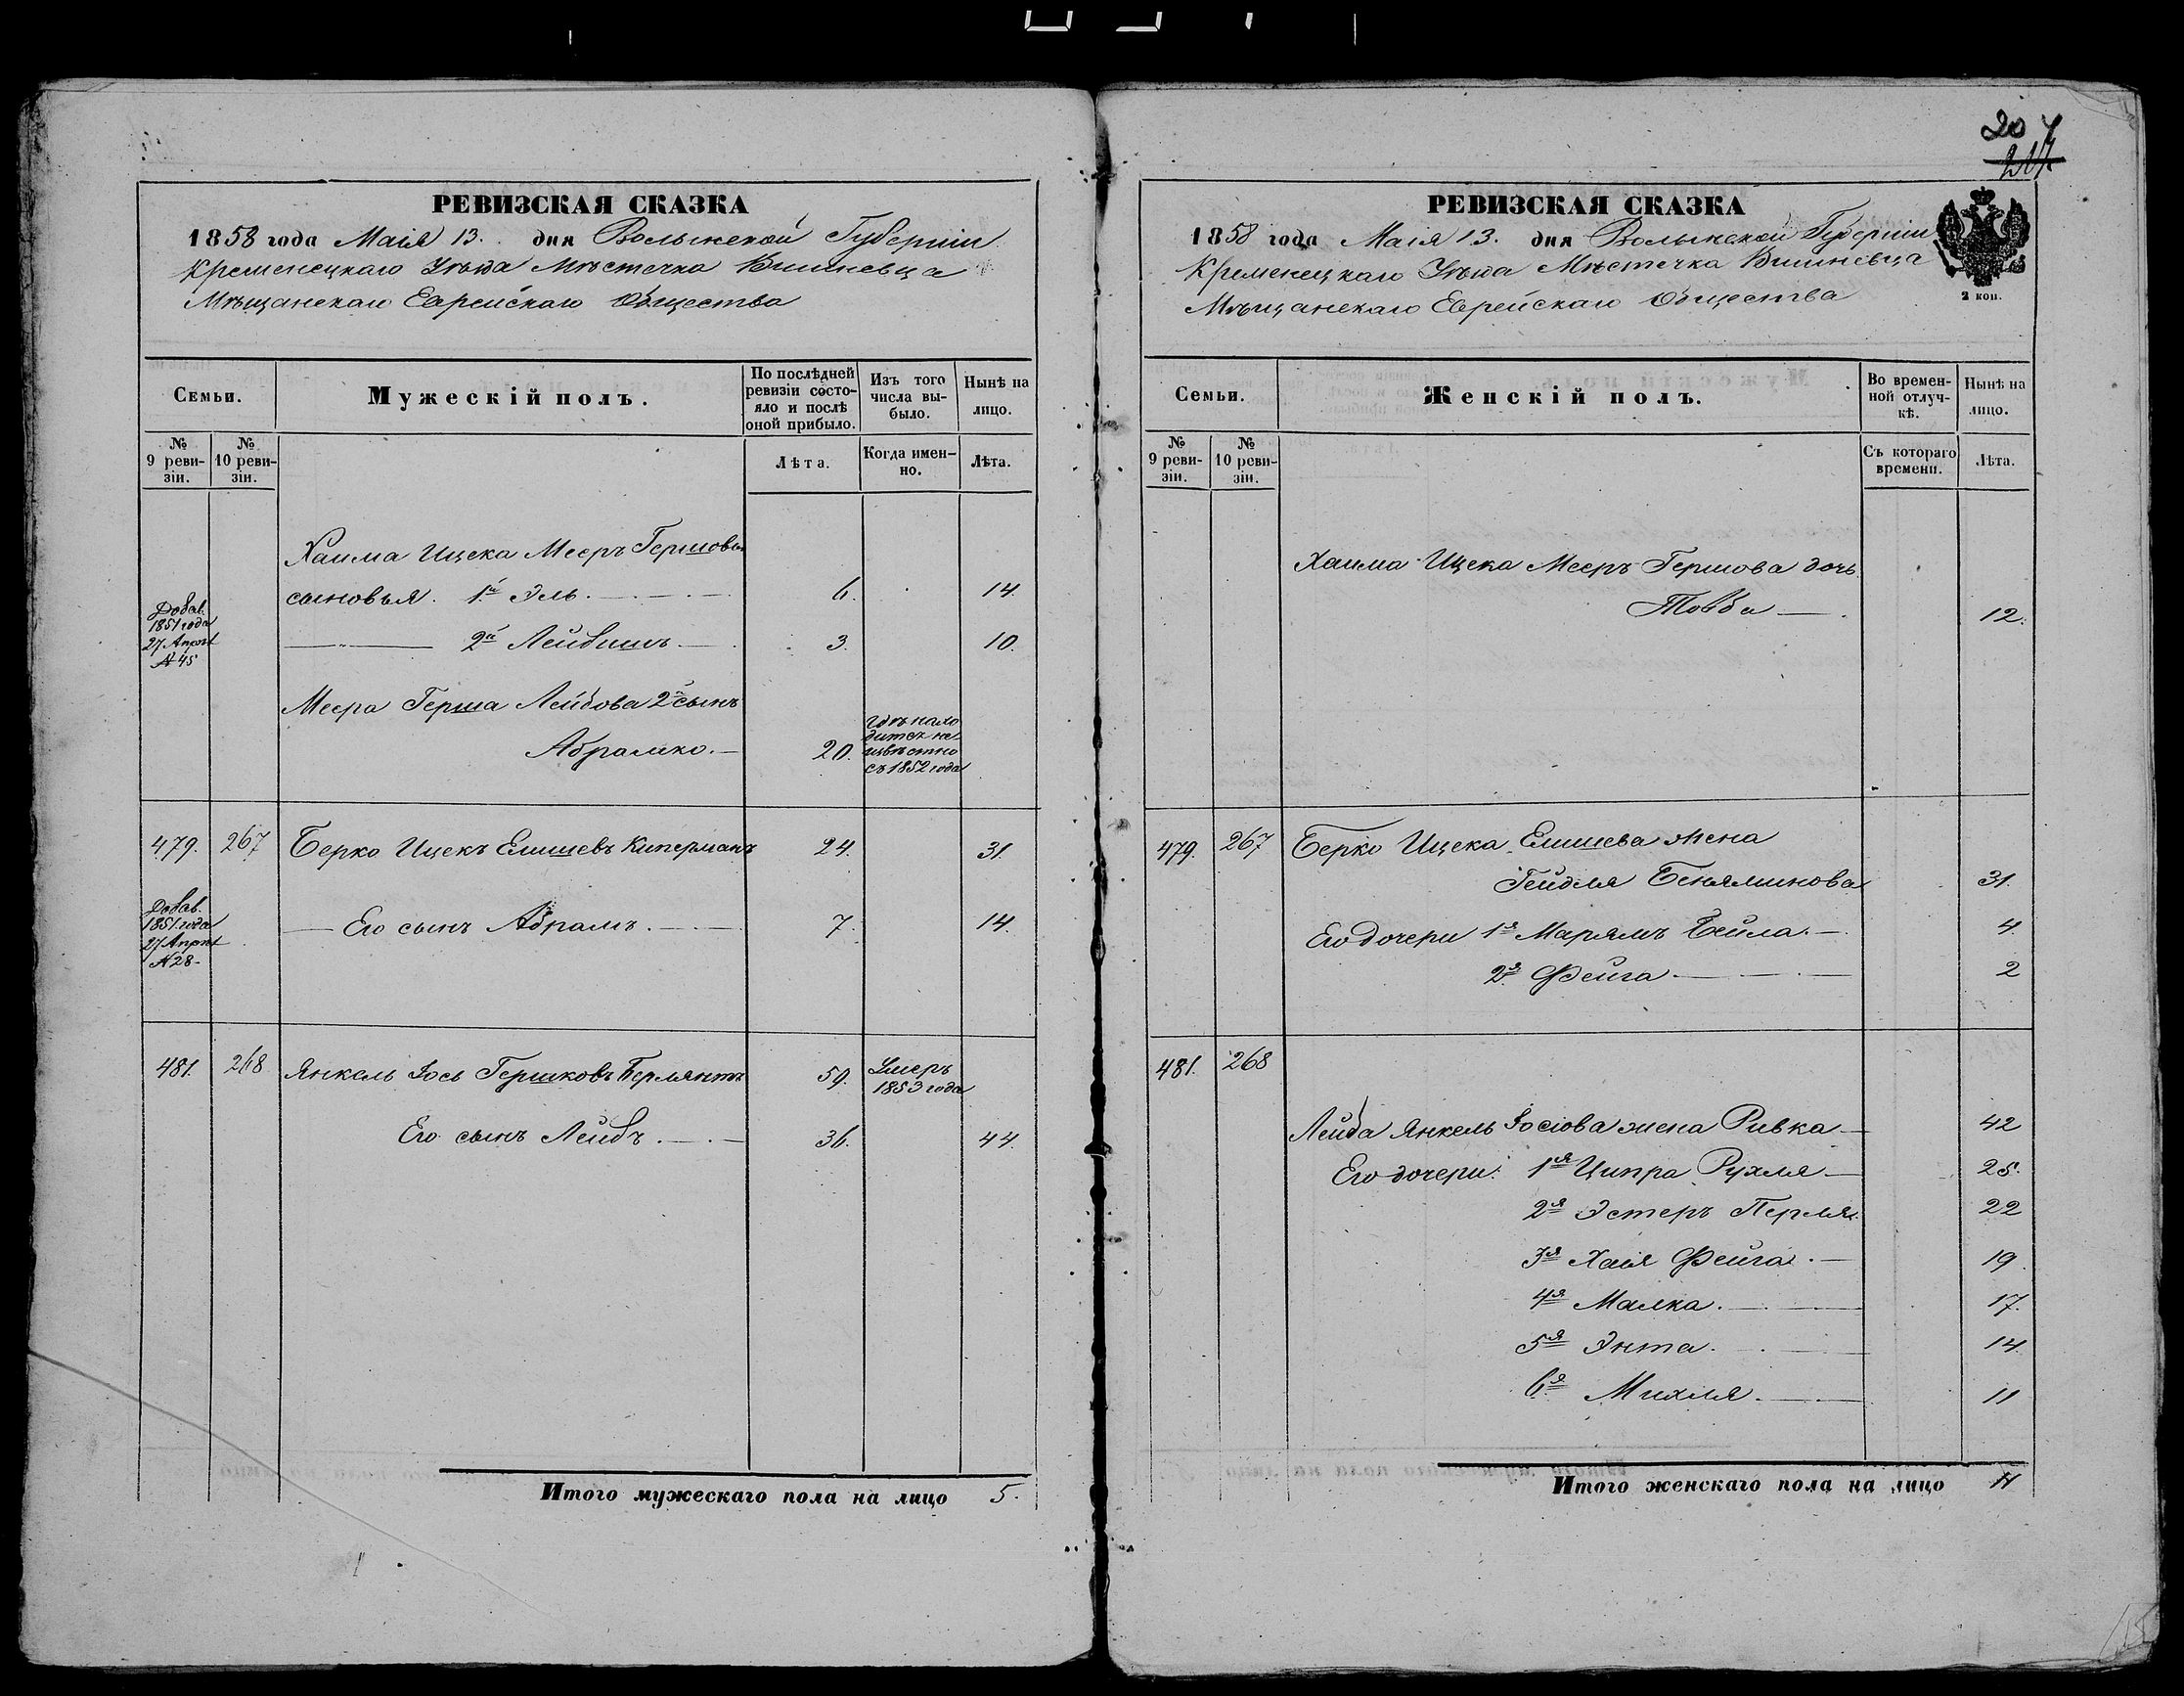 207
217
РЕВИЗСКАЯ СКАЗКА
1858 года Маія 13. дня Волынской Губерніи
Кременецкаго Уѣзда Мѣстечка Вишневца
Мѣщанскаго Еврейскаго Общества
Семьи.
Мужескій полъ.
По послѣдней ревизіи состояло и послѣ оной прибыло.
Изъ того числа выбыло.
Нынѣ на лицо.
№ 9 ревизіи.
№ 10 ревизіи.
Лѣта.
Когда именно.
Лѣта.
Хаима Ицека Меєръ Гершовы
сыновья. 1й Эль. 6. 14.
Добав.
1851 года
27 Апрѣл
№ 45
2й Лейбишъ 3. 10.
Меера Герша Лейбова 2й сынъ
Абрамко. 20.
гдѣ нахо
дится не-
извѣстно
съ 1852 года
479. 267 Берко Ицекъ Елишевъ Киперманъ 24. 31.
Добав.
1851 года
27 Апрѣл
№ 28
Его сынъ Абрамъ. 7. 14.
481. 268 Янкель Іось Гершковъ Перлянтъ 59. Умеръ
1853 года
Его сынъ Лейбъ. 36. 44.
Итого мужескаго пола на лицо 5.
РЕВИЗСКАЯ СКАЗКА
1858 года Маія 13. дня Волынской Губерніи
Кременецкаго Уѣзда Мѣстечка Вишневца
Мѣщанскаго Еврейскаго Общества
2 коп.
Семьи.
Женскій полъ.
Во временной отлучкѣ.
Нынѣ на лицо.
№ 9 ревизіи.
№ 10 ревизіи.
Съ котораго времени.
Лѣта.
Хаима Ицека Меєръ Гершова дочь
Товба 12.
479. 267 Берко Ицека Елишева жена
Гейдля Беняминова 31.
Его дочери 1я Марямъ Бейла. 4.
2я Фейга 2
481. 268
Лейба Янкель Іосіова жена Ривка 42
Его дочери: 1я Ципра Рухля 25.
2я Эстеръ Перля 22
3я Хаія Фейга. 19.
4я Малка. 17.
5я Энта. 14.
6я Михля. 11
Итого женскаго пола на лицо 11